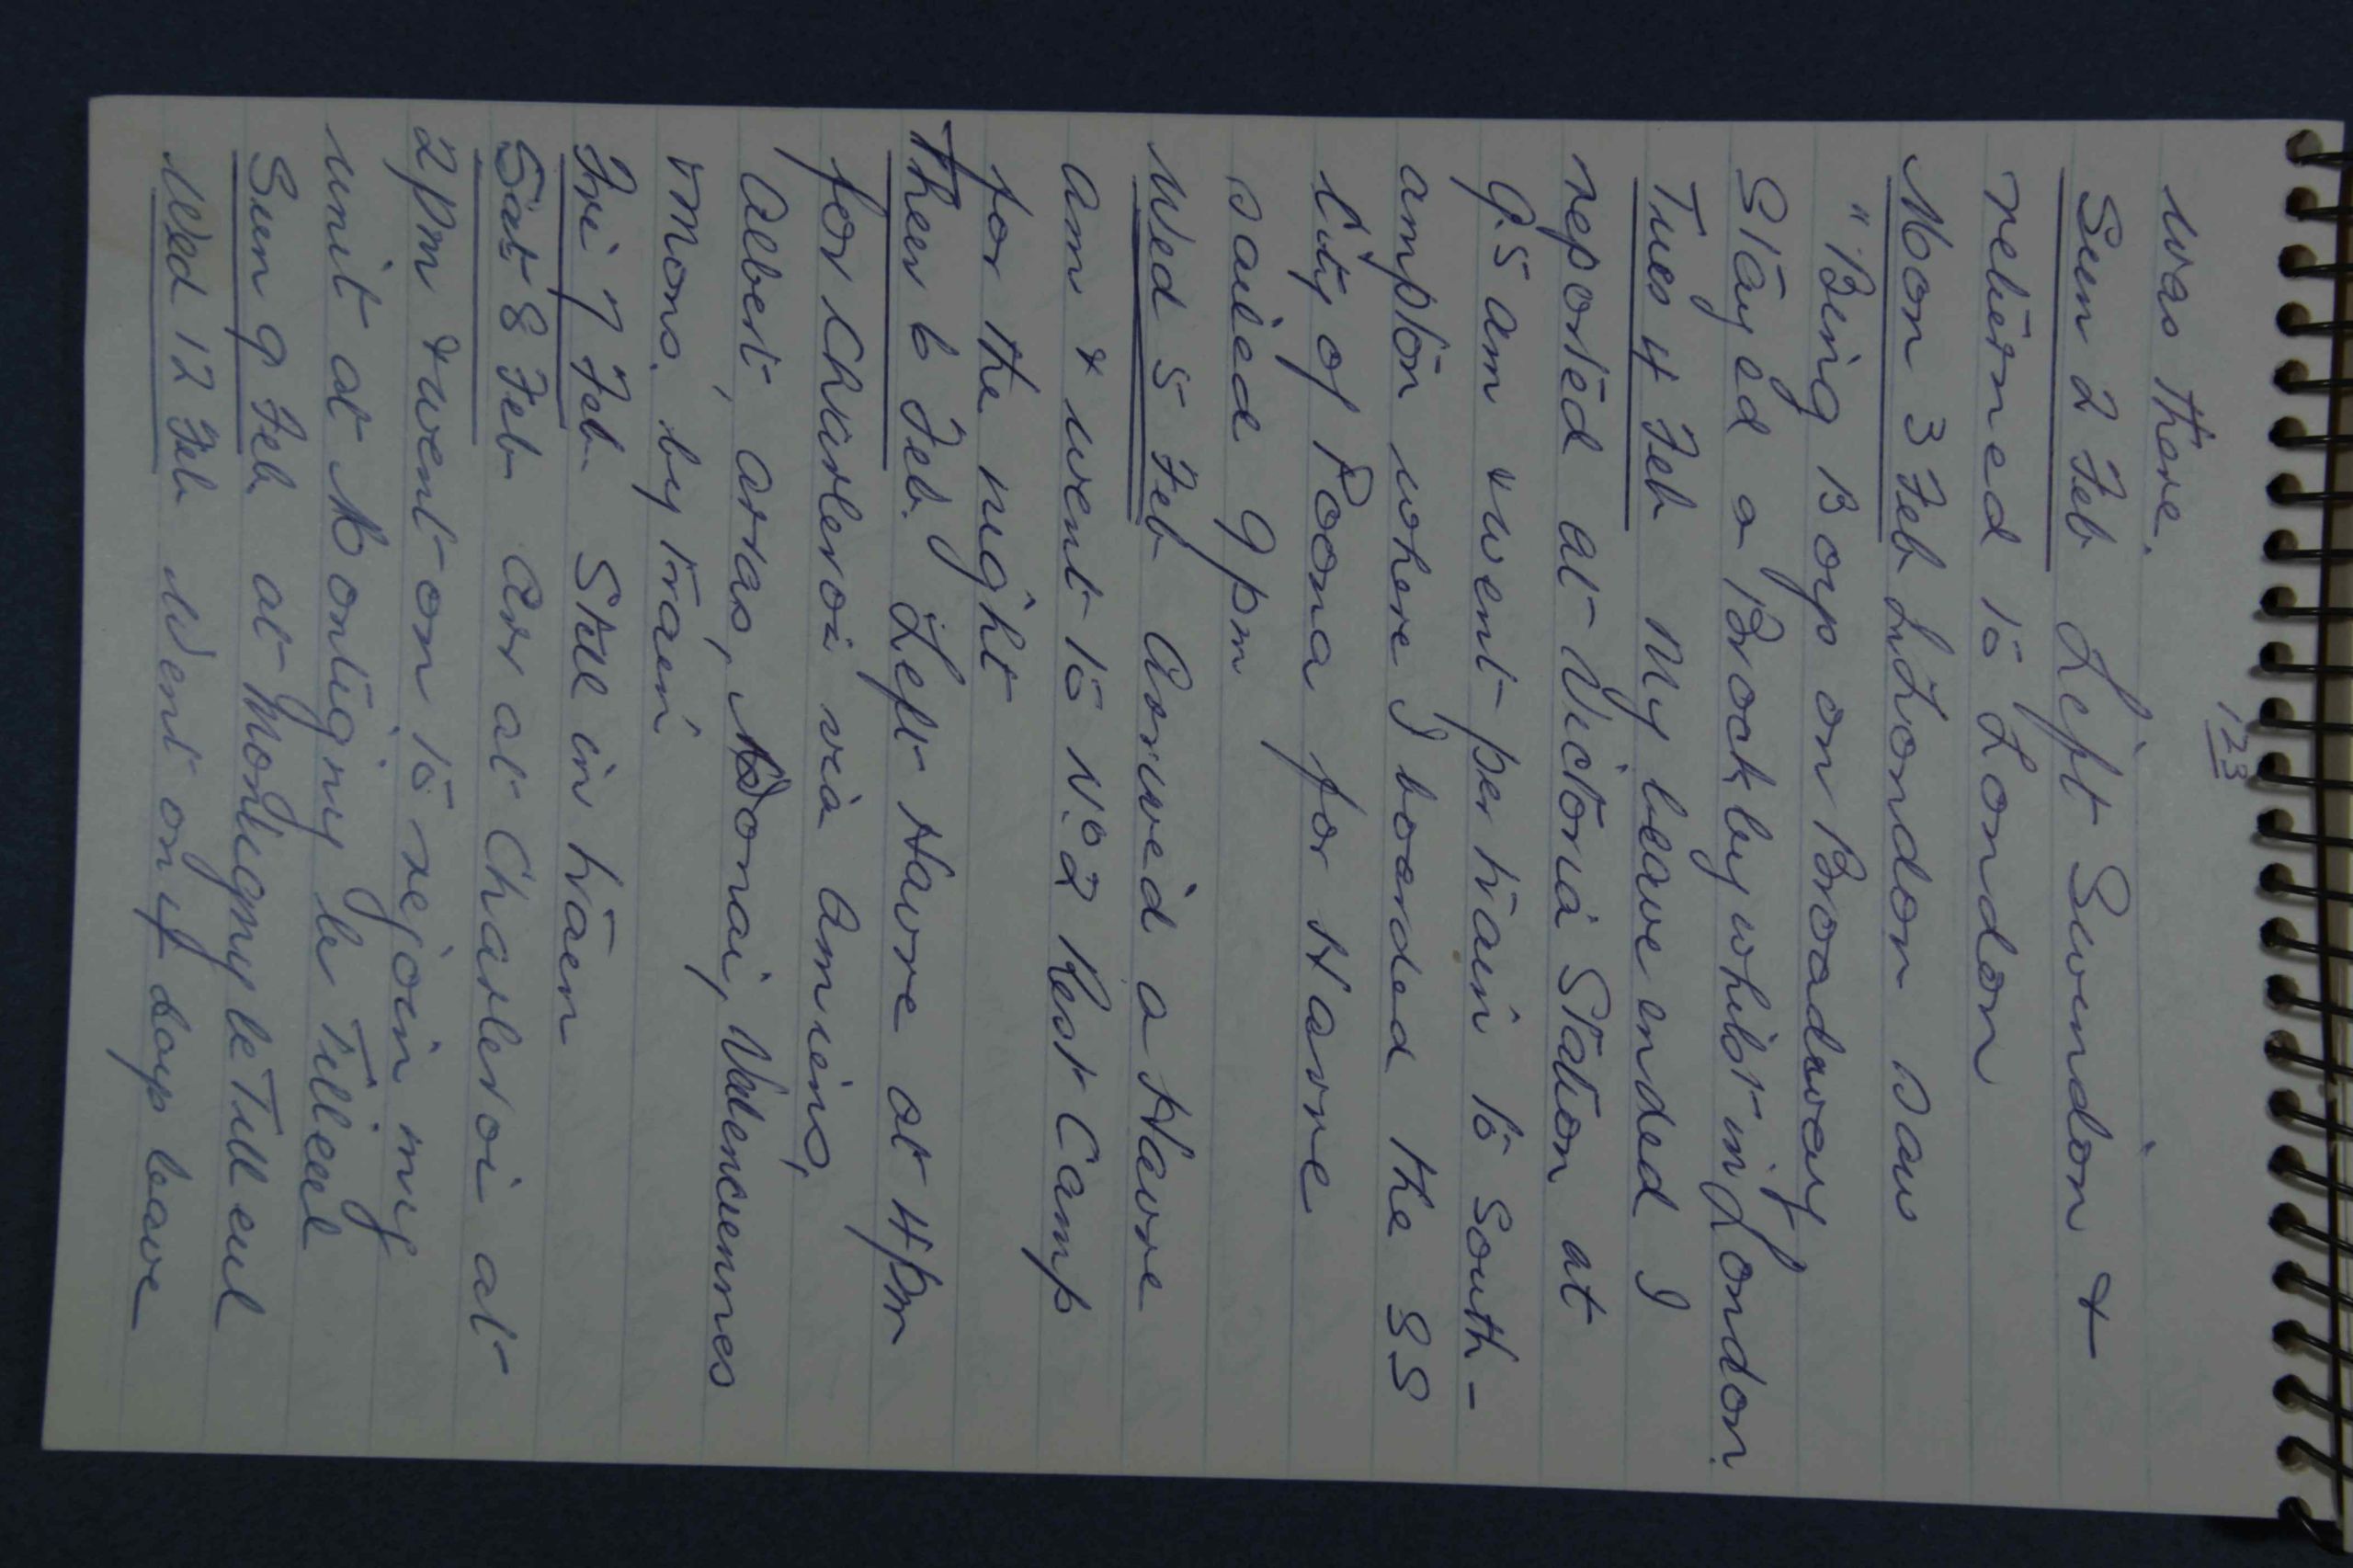 123
was there.
Sun 2 Feb Left Swindon &
returned to London
Mon 3 Feb In London saw
"Bing Boys on Broadway
Stayed a Brockley whilst in London.
Tues 4 Feb My leave ended I
reported at Victoria Station at
9.5 am & went per train to South-
ampton where I boarded the SS
City of Poona for Havre
sailed 9 pm
Wed 5 Feb Arrived a Havre
am & went to No 2 Rest Camp
for the night
Thur 6 Feb. Left Havre at 4pm
for Charleroi via Amiens,
Albert, Arras, Donai, Valenciennes
Mons. by train
Fri 7 Feb. Still in train
Sat 8 Feb arr at Charleroi at
2pm & went on to rejoin my
unit at Montigny le Tilleul
Sun 9 Feb at Montigny le Tilleul
Wed 12 Feb Went on 4 days leave